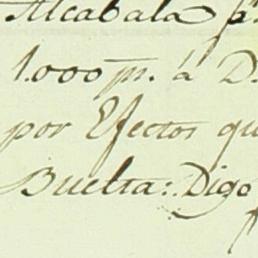 Alcabala p.
1.000 ps. á D.
por Efectos qu
Buelta: Digo